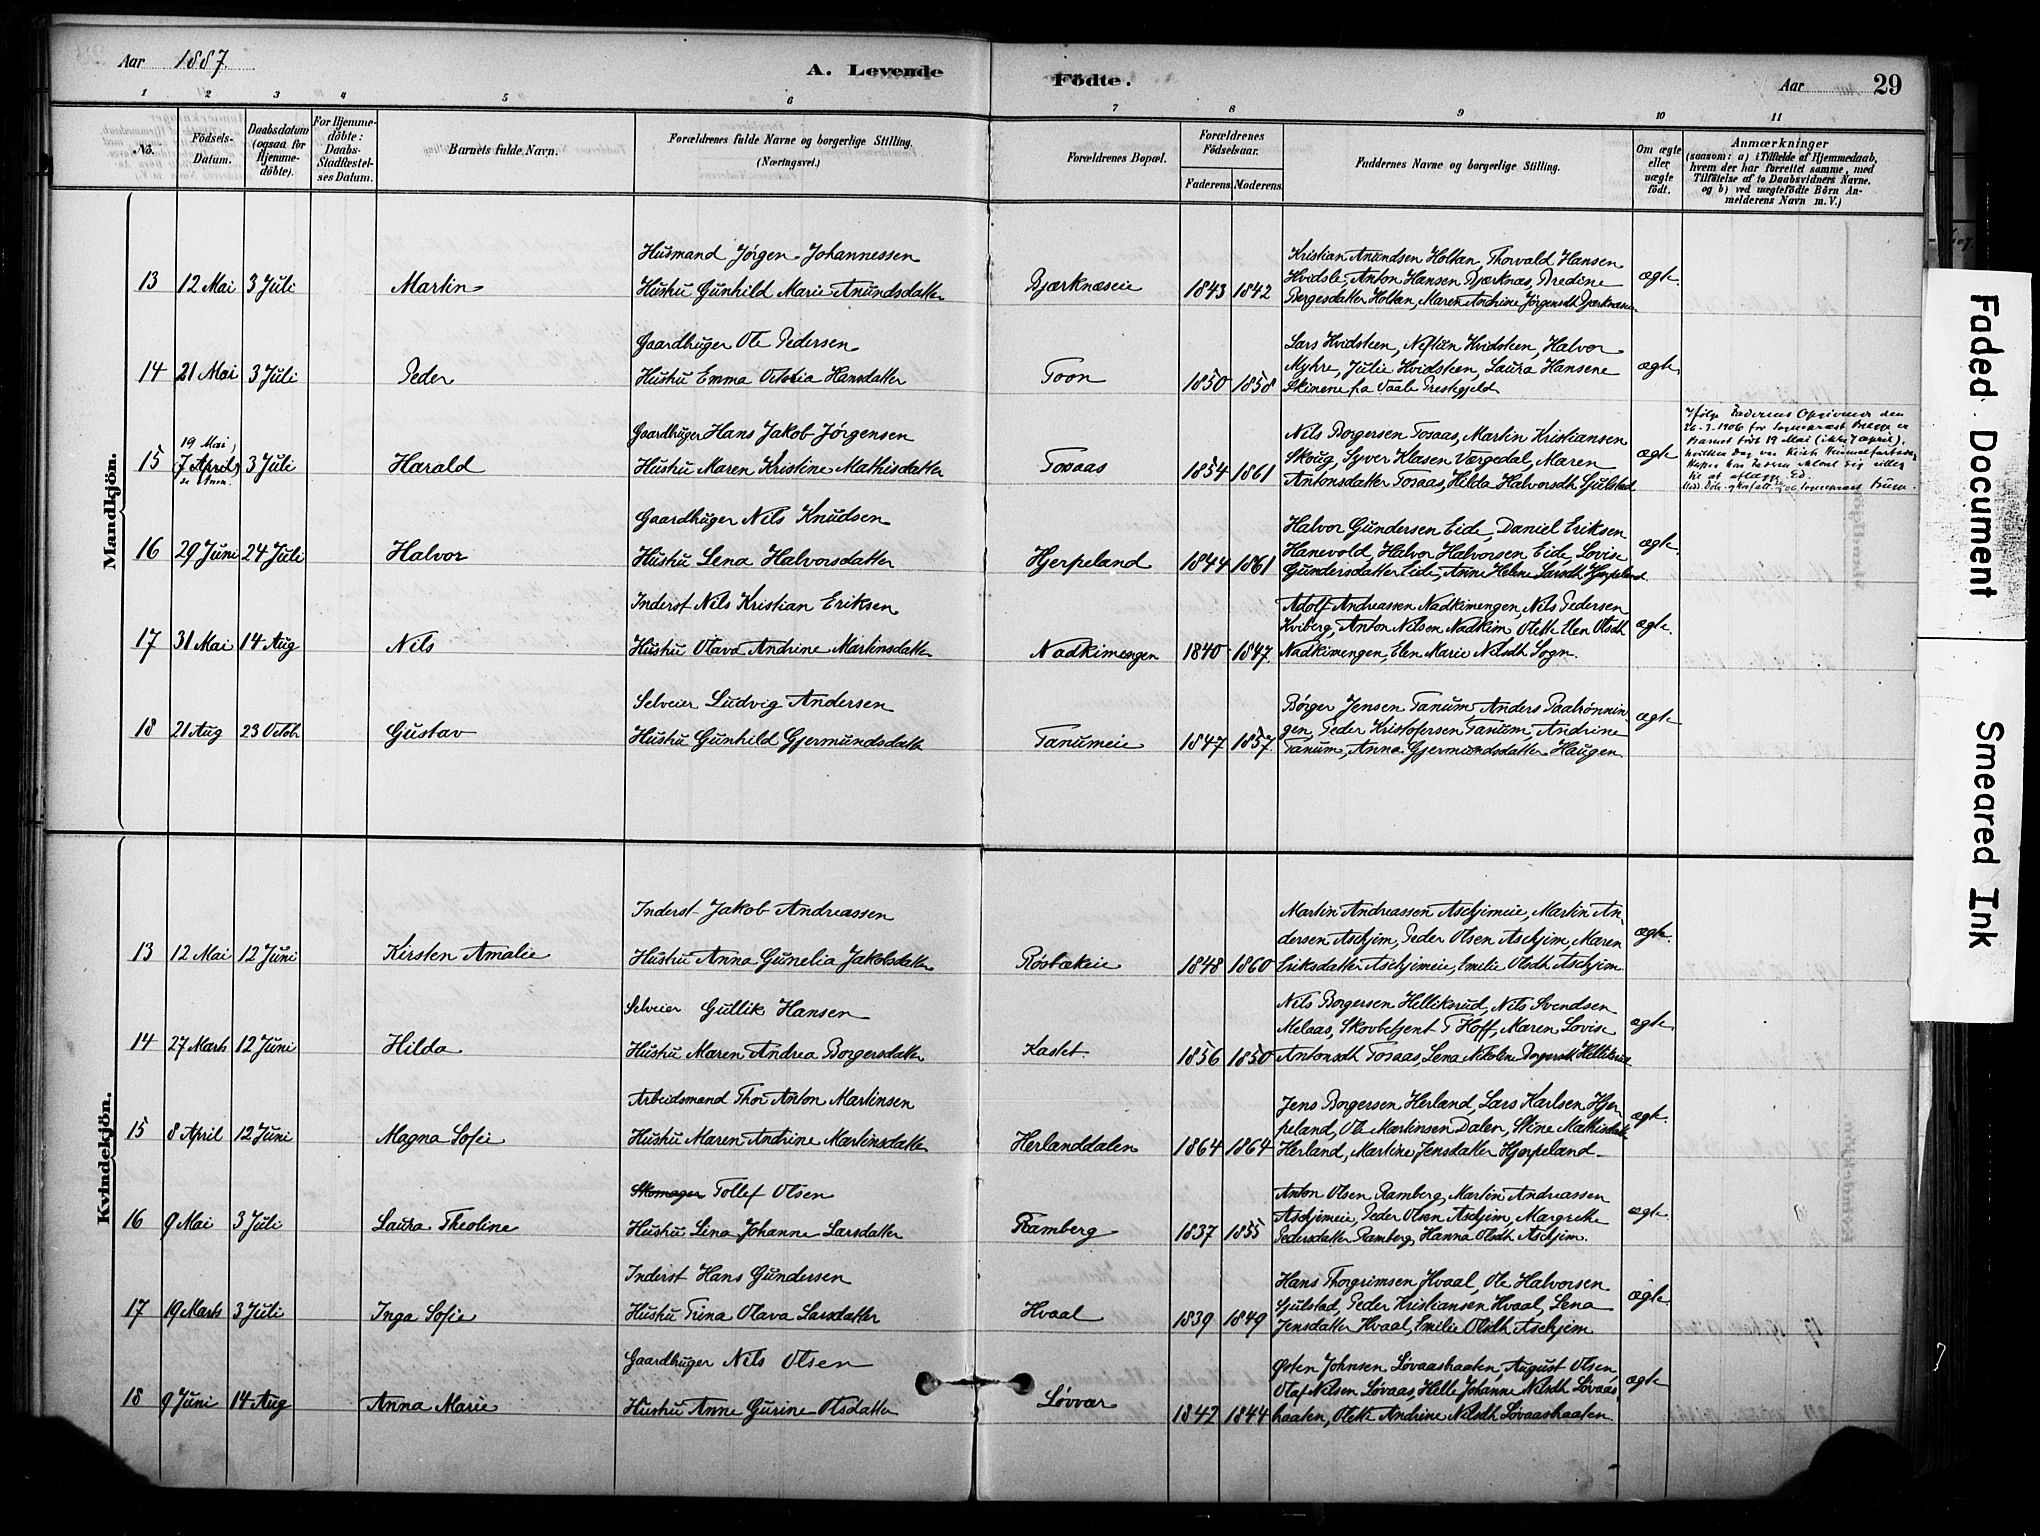 Aar 1887. A. Levende Födte. Aar 29
1 2 3 4 5 6 7 8 9 10 11
No. Födsels-Datum. Daabsdatum (ogsaa for Hjemme-döbte). For Hjemme-döbte: Daabs-Stadfæstel-ses Datum. Barnets fulde Navn. Forældrenes fulde Navne og borgerlige Stilling. (Næringsvei.) Forældrenes Bopæl. Forældrenes Födselsaar. Faderens. Moderens. Faddernes Navne og borgerlige Stilling. Om ægte eller uægte født. Anmærkninger (saasom: a) i Tilfælde af Hjemmedaab, hvem der har forrettet samme, med Tilföielse af to Daabsvidners Navne, og b) ved uægtefödte Börn An-melderens Navn m. V.)
Mandkjön.
Husmand Jörgen Johannessen
13 12 Mai 3 Juli Martin Hustru Gunhild Marie Anundsdatter Bjærknæseie 1843 1842
Kristian Anundsen Holtan, Thorvald Hansen
Hvidsle, Anton Hansen Bjærknæs, Bredine
Børgesdatter Holtan, Maren Andrine Jörgensdt Bjærknæseie ægte.
Gaardbruger Ole Pedersen
14 21 Mai 3 Juli Peder Hustru Emma Octavia Hansdatter Toon 1850 1858
Lars Hvidsteen, Hvidsteen, Halvor
Myhre, Julie Hvidsteen, Laura Hansene
Skinene fra Vaale Prestegjeld ægte.
Gaardbruger Hans Jakob Jörgensen
19 Mai,
15 (7 April) 3 Juli Harald Hustru Maren Kristine Mathisdatter Tosaas 1854 1861
se Anm.
Nils Borgersen Tosaas, Martin Kristiansen
Skoug, Syver Klasen Vergedal, Maren
Antonsdatter Tosaas, Hilda Halvorsdt Gjulstad ægte
Ifölge Faderens Opgivende den
26-3-1906 for Sogneprest er
Barnet födt 19 Mai (ikke 7 april),
hvilken Dag var Kristi Himmelfartsdag
til at aflægge Ed.
Gaardbruger Nils Knudsen
16 29 Juni 24 Juli Halvor Hustru Lena Halvorsdatter Hjerpeland 1844 1861
Halvor Gundersen Eide, Daniel Eriksen
Hanevold, Halvor Halvorsen Eide, Lovise
Gundersdatter Eide, Anne Helene Larsdt Hjerpeland ægte.
Inderst Nils Kristian Eriksen
17 31 Mai 14 Aug Nils Hustru Olava Andrine Martinsdatter Nadkimengen 1840 1847.
Adolf Andreassen Nadkimengen, Nils Pedersen
Kviberg, Anton Nilsen Nadkim, Olette Elen Olsdt
Nadkimengen, Elen Marie Nilsdt Sogn. ægte.
Selveier Ludvig Andersen
18 21 Aug 23 Octob. Gustav Hustru Gunhild Gjermundsdatter Tanumeie 1847 1857
Børger Jensen Tanum, Anders Paalrønnin-
gen, Peder Kristofersen Tanum, Andrine
Tanum, Anna Gjermundsdatter Haugen ægte
Kvindekjön.
Inderst Jakob Andreassen
13 12 Mai 12 Juni Kirsten Amalie Hustru Anna Gunelia Jakobsdatter Røsbækeie 1848 1860
Martin Andreassen Aschjimeie, Martin An-
dersen Aschjim, Peder Olsen Aschjim, Maren
Eriksdatter Aschjimeie, Emilie Olsdt Aschjim. ægte.
Selveier Gullik Hansen
14 27 Marts 12 Juni Hilda Hustru Maren Andrea Borgersdatter Kastet 1856 1850
Nils Borgersen Helliksrud, Nils Svendsen
Melaas, Skovbetjent T. Hoff, Maren Lovise
Antonsdt Tosaas, Lena Nikoline Borgersdt Helliksrud ægte
Arbeidsmand Thor Anton Martinsen
15 8 April 12 Juni Magna Sofie Hustru Maren Andrine Martinsdatter Herlanddalen 1864 1864
Jens Borgersen Herland, Lars Karlsen Hjer-
peland, Ole Martinsen Dalen, Stine Mathisdatter
Herland, Martine Jensdatter Hjerpeland. ægte.
Skomager Tollef Olsen
16 9 Mai 3 Juli Laura Theoline Hustru Lina Johanne Larsdatter Ramberg 1837 1855
Anton Olsen Ramberg, Martin Andreassen
Aschjimeie, Peder Olsen Aschjim, Margrethe
Pedersdatter Ramberg, Hanna Olsdt Aschjim. ægte.
Inderst Hans Gundersen
17 19 Marts 3 Juli Inga Sofie Hustru Trina Olava Larsdatter Hvaal 1839 1849
Hans Thorgrimsen Hvaal, Ole Halvorsen
Gjulstad, Peder Kristiansen Hvaal, Lena
Jensdatter Hvaal, Emilie Olsdt Aschjim ægte.
Gaardbruger Nils Olsen
18 9 Juni 14 Aug Anna Marie Hustru Anne Gurine Olsdatter Løvvar 1842 1844
Østen Johnsen Løvaasbraaten, August Olsen,
Olaf Nilsen Løvaas, Helle Johanne Nilsdt Løvaas-
braaten, Olette Andrine Nilsdt Løvaasbraaten ægte
Faded Document
Smeared Ink